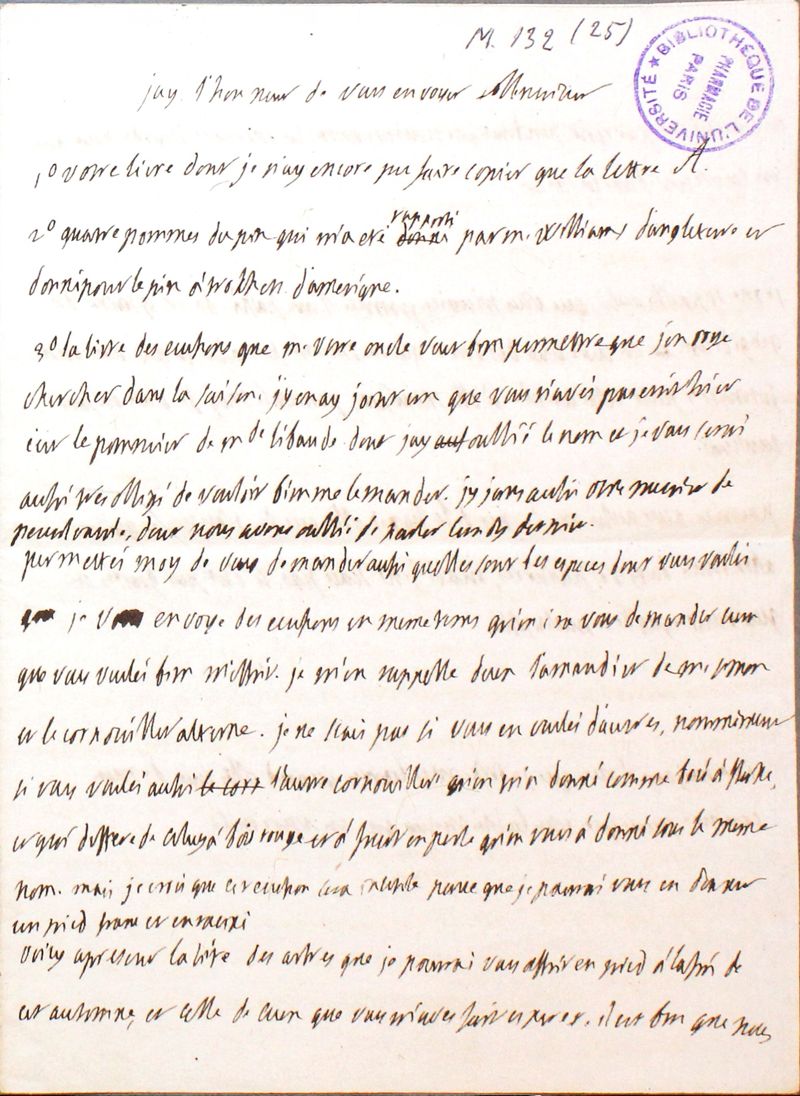 M. 132 (25)
BIBLIOTHÈQUE DE L'UNIVERSITÉ ★
PHARMACIE
PARIS
jay l'honneur de vous envoyer Monsieur
1o votre livre dont je n'ay encore pu faire copier que la lettre A.
2o quatre pommes du pin qui m'a eté donné rapporté par mr. Williams d'angleterre et
donné pour le pin à trochets d'amerique.
3o la liste des ecussons que mr. votre oncle veut bien permettre que j'envoye
chercher dans la saison. j'y en ay joint un que vous n'aviés pas ecrit hier
sur le pommier de mde libaude dont j'ay oublié le nom et je vous serai
aussi tres obligé de vouloir bien me le mander. j'y joins aussi de
dont nous avons oublié de parler
permettés moy de vous demander aussi quelles sont les especes dont vous voulés
que je vous envoye des ecussons en meme tems qu'on ira vous demander ceux
que vous voulés bien m'offrir. je m'en rappelle deux l'amandier de mr.
et le cornouiller alterne. je ne scais pas si vous en voulés d'autres, nommément
si vous voulés aussi le corn l'autre cornouiller qu'on m'a donné comme
et qui differe de celuy à bois rouge et à fruit en perle qu'on vous a donné sous le meme
nom. mais je crois que cet ecusson sera inutile parce que je pourrai vous en donner
un pied franc et enraciné
voicy apresent la liste des arbres que je pourrai vous offrir en pied à la fin de
cet automne, et celle de ceux que vous m'aves fait esperer. il est bon que nous